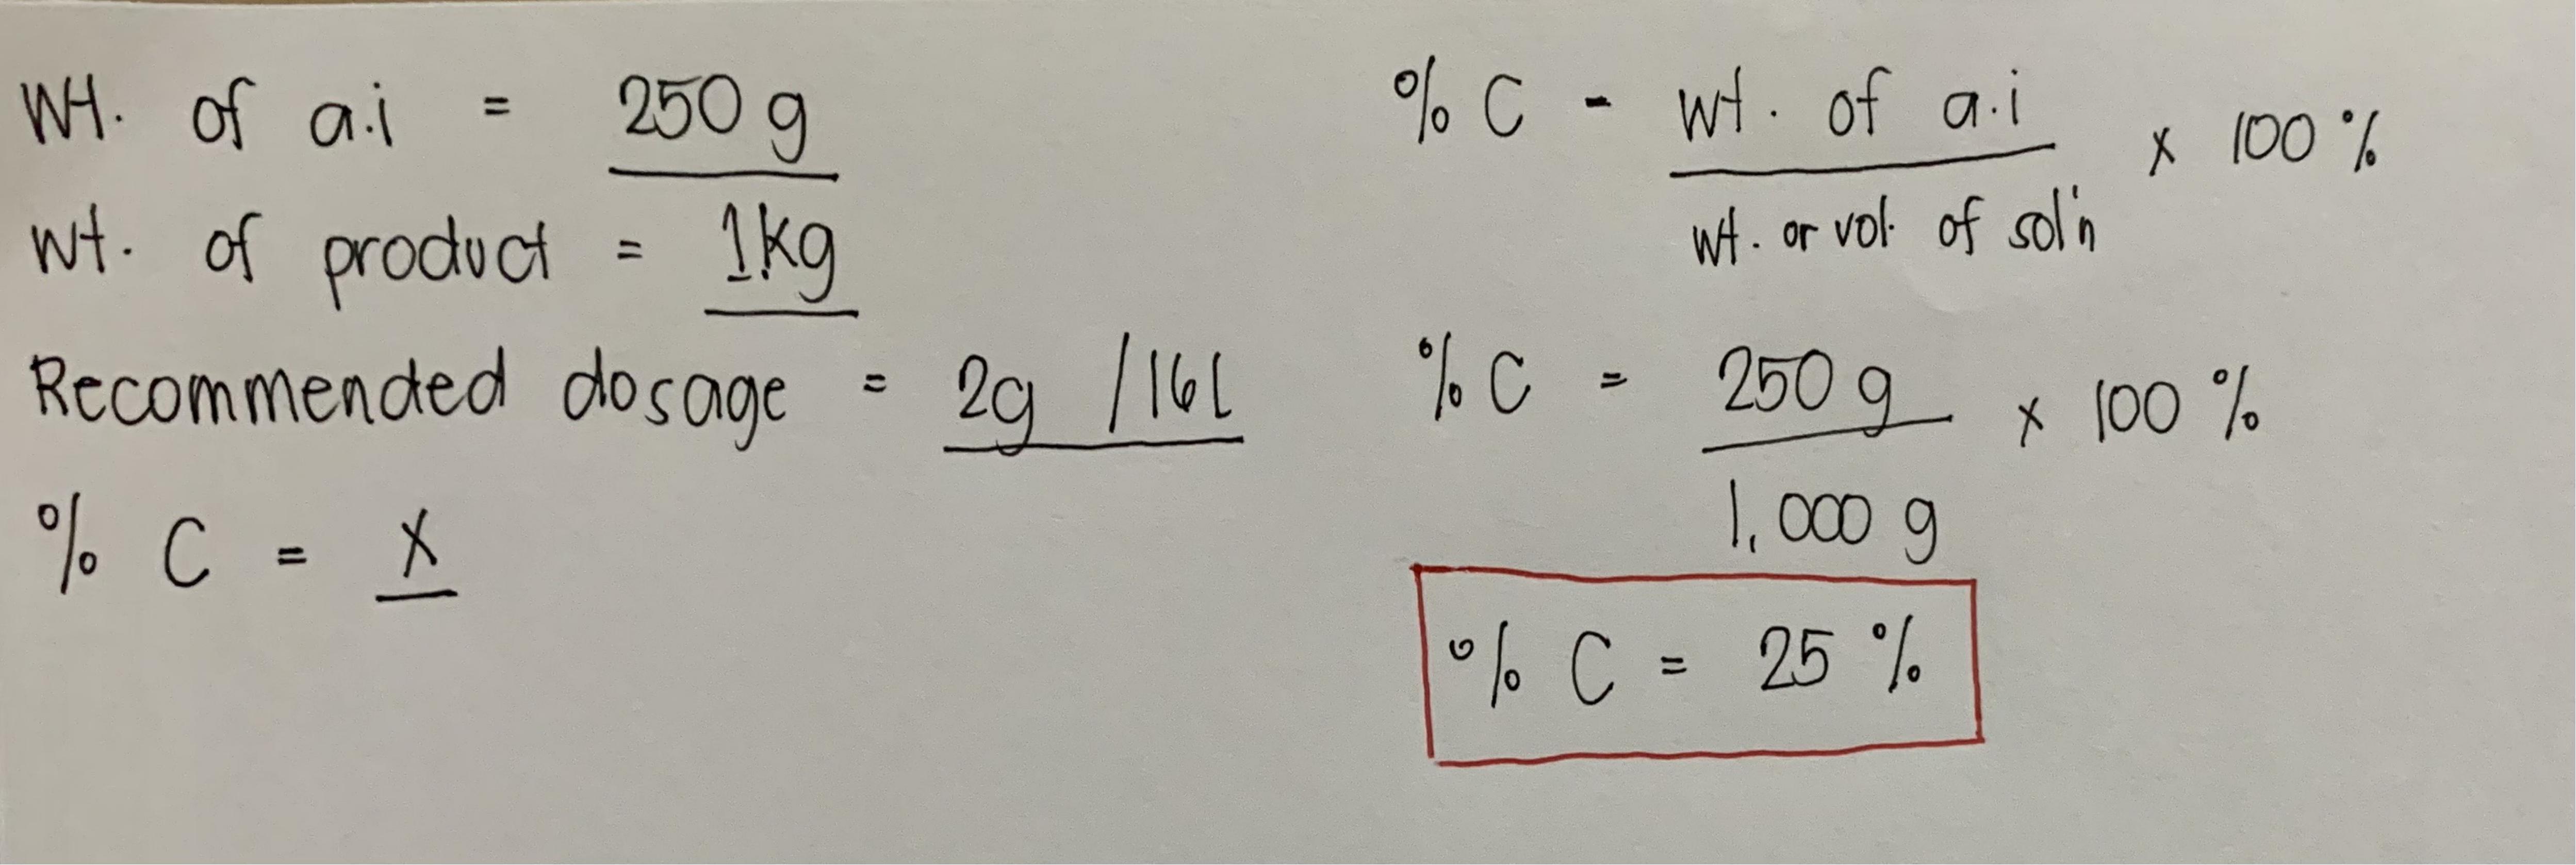 Wt. of a.i = 250 g
wt. of product = 1kg
Recommended dosage = 2g /16L
% C = X
% C - wt. of a.i
wt. or vol. of sol'n
x 100 %
% C = 250 g
1,000 g
x 100 %
% C = 25 %